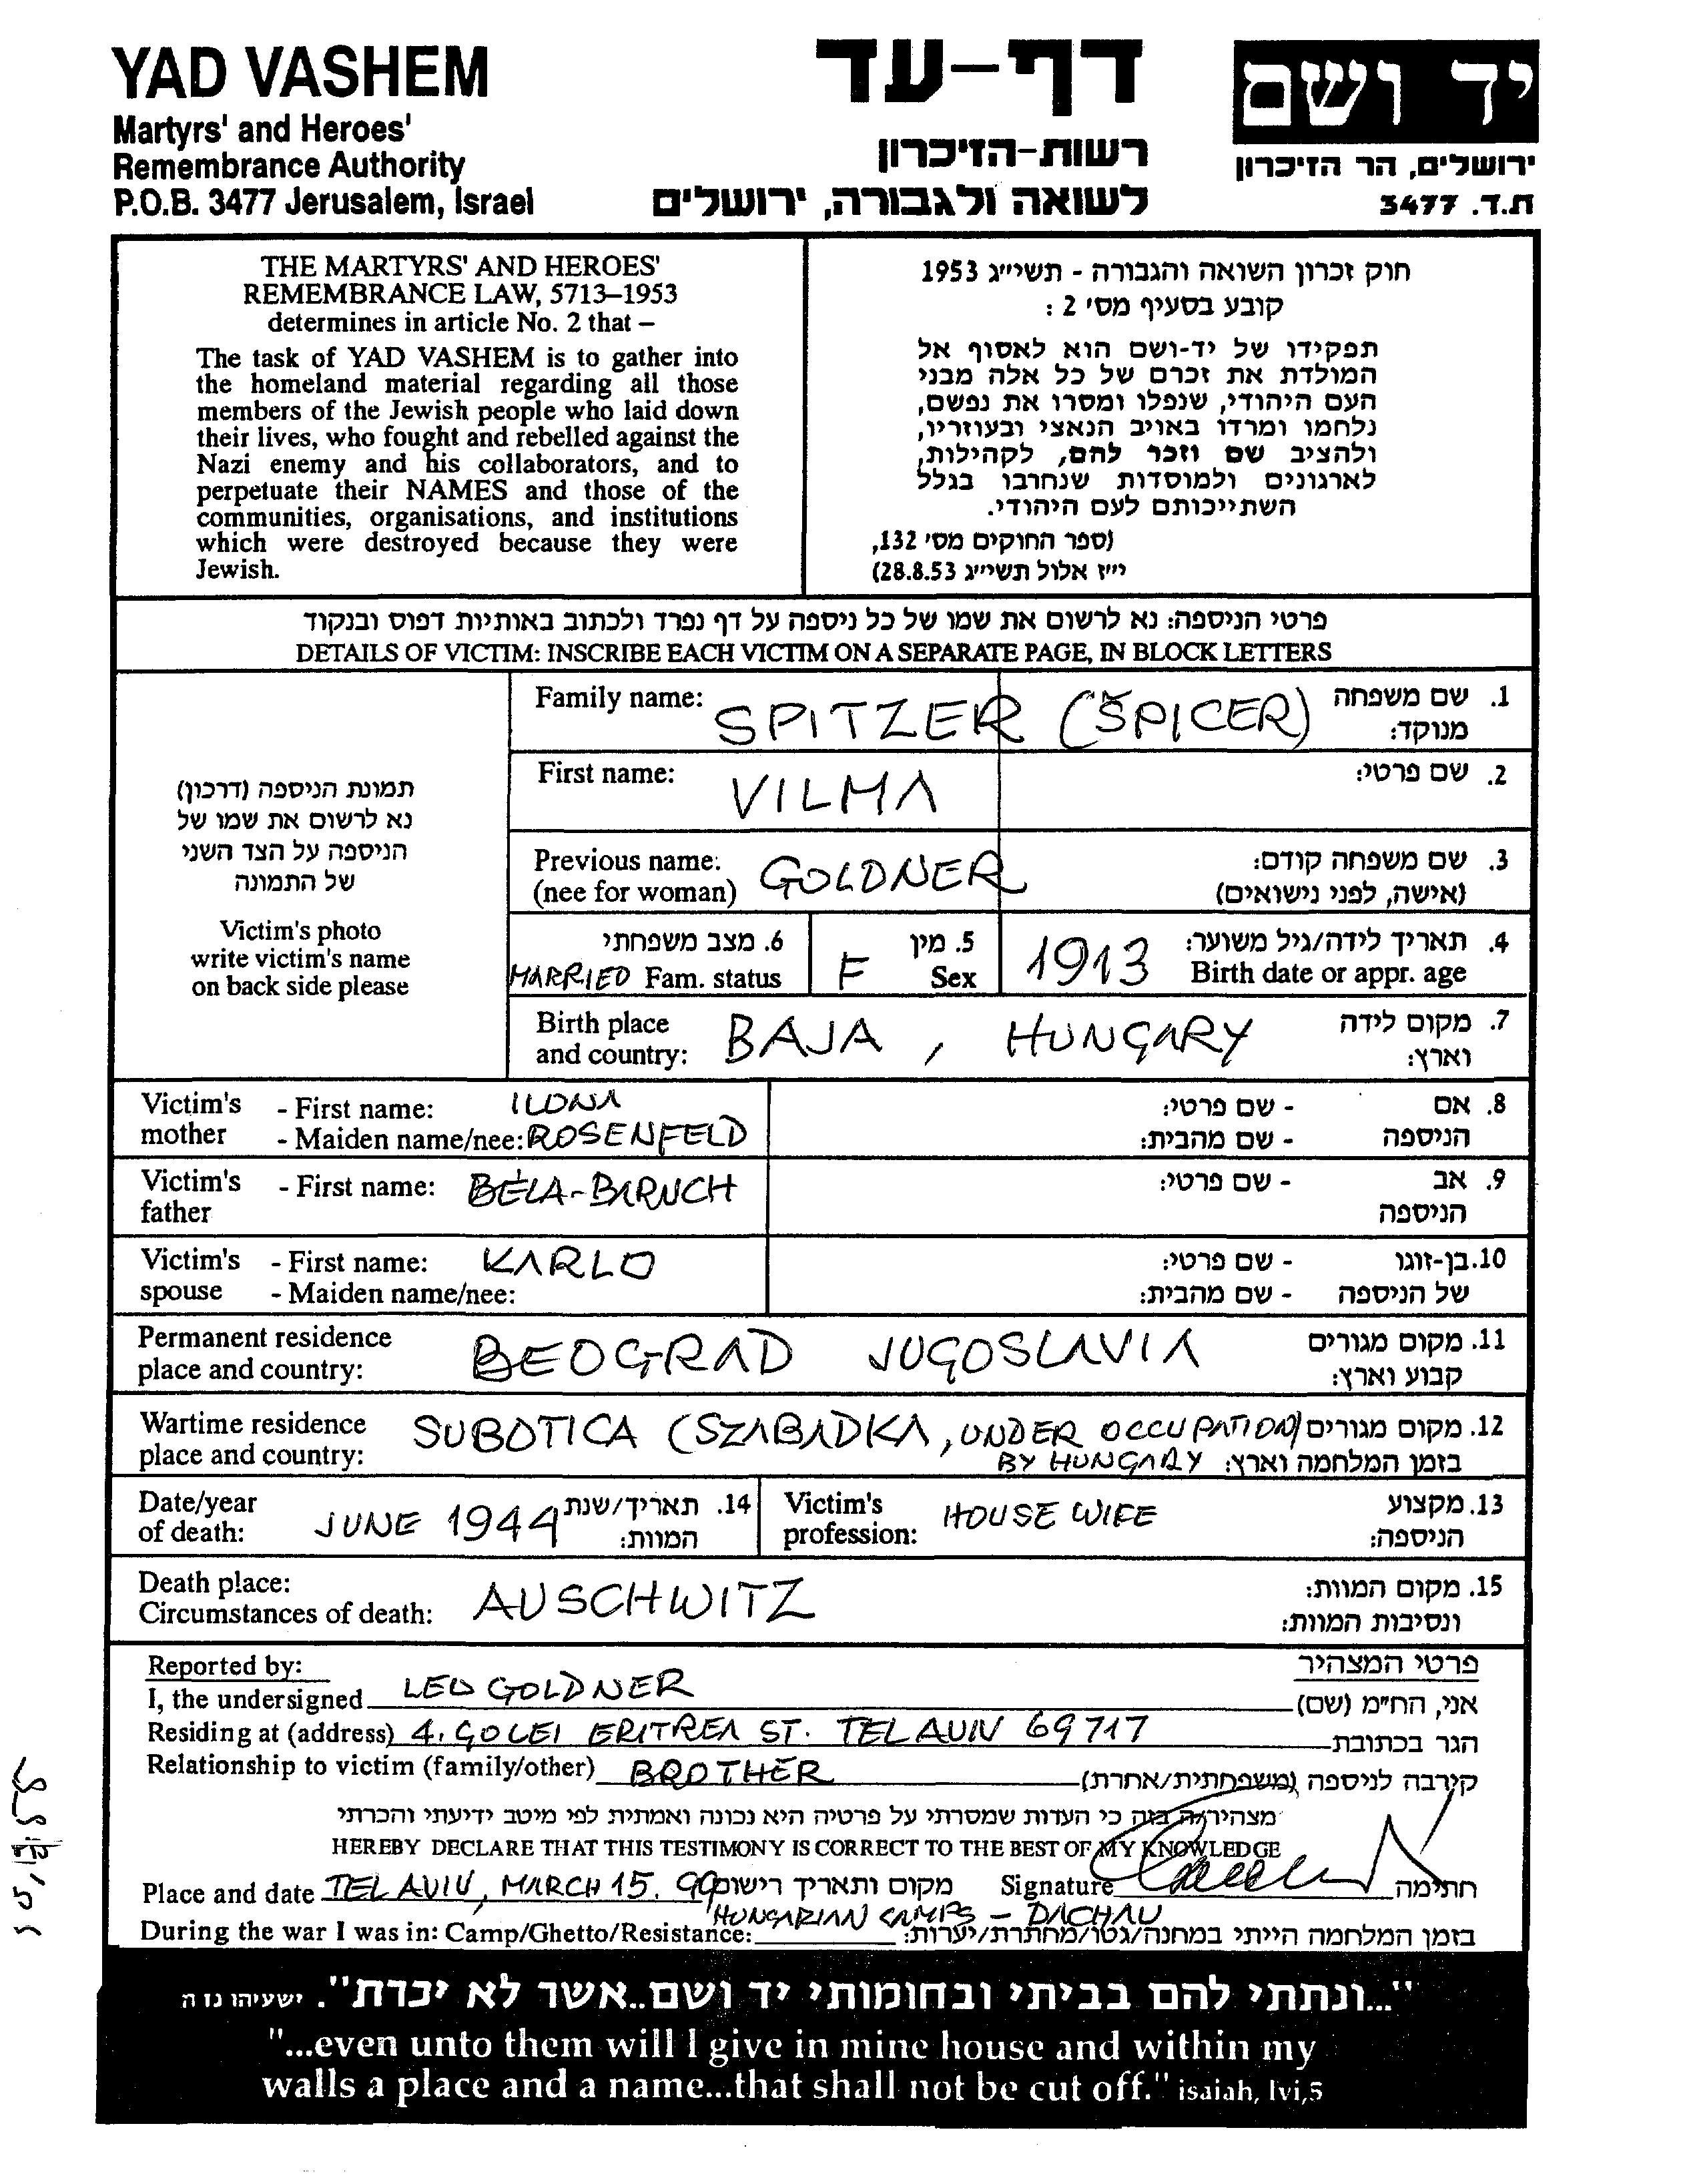 YAD VASHEM
Martyrs' and Heroes'
Remembrance Authority
P.O.B. 3477 Jerusalem, Israel
דף-עד
רשות-הזיכרון
לשואה ולגבורה, ירושלים
יד ושם
ירושלים, הר הזיכרון
ת.ד. 3477
THE MARTYRS' AND HEROES'
REMEMBRANCE LAW, 5713–1953
determines in article No. 2 that –
The task of YAD VASHEM is to gather into
the homeland material regarding all those
members of the Jewish people who laid down
their lives, who fought and rebelled against the
Nazi enemy and his collaborators, and to
perpetuate their NAMES and those of the
communities, organisations, and institutions
which were destroyed because they were
Jewish.
חוק זכרון השואה והגבורה - תשי״ג 1953
קובע בסעיף מס' 2 :
תפקידו של יד-ושם הוא לאסוף אל
המולדת את זכרם של כל אלה מבני
העם היהודי, שנפלו ומסרו את נפשם,
נלחמו ומרדו באויב הנאצי ובעוזריו,
ולהציב שם וזכר להם, לקהילות,
לארגונים ולמוסדות שנחרבו בגלל
השתייכותם לעם היהודי.
(ספר החוקים מס' 132,
י״ז אלול תשי״ג 28.8.53)
פרטי הניספה: נא לרשום את שמו של כל ניספה על דף נפרד ולכתוב באותיות דפוס ובנקוד
DETAILS OF VICTIM: INSCRIBE EACH VICTIM ON A SEPARATE PAGE, IN BLOCK LETTERS
תמונת הניספה (דרכון)
נא לרשום את שמו של
הניספה על הצד השני
של התמונה
Victim's photo
write victim's name
on back side please
Family name: SPITZER (ŠPICER) 1. שם משפחה
מנוקד:
First name: VILMA 2. שם פרטי:
Previous name: GOLDNER 3. שם משפחה קודם:
(nee for woman) (אישה, לפני נישואים)
6. מצב משפחתי 5. מין 4. תאריך לידה/גיל משוער:
MARRIED Fam. status F Sex 1913 Birth date or appr. age
Birth place BAJA, HUNGARY 7. מקום לידה
and country: וארץ:
Victim's - First name: ILONA 8. אם - שם פרטי:
mother - Maiden name/nee: ROSENFELD הניספה - שם מהבית:
Victim's - First name: BÉLA-BARUCH 9. אב - שם פרטי:
father הניספה
Victim's - First name: KARLO 10. בן-זוגו - שם פרטי:
spouse - Maiden name/nee: של הניספה - שם מהבית:
Permanent residence BEOGRAD JUGOSLAVIA 11. מקום מגורים
place and country: קבוע וארץ:
Wartime residence SUBOTICA (SZABADKA, UNDER OCCUPATION) 12. מקום מגורים
place and country: BY HUNGARY בזמן המלחמה וארץ:
Date/year JUNE 1944 14. תאריך/שנת Victim's HOUSE WIFE 13. מקצוע
of death: המוות: profession: הניספה:
Death place: AUSCHWITZ 15. מקום המוות:
Circumstances of death: ונסיבות המוות:
Reported by: פרטי המצהיר
I, the undersigned LEO GOLDNER אני, הח״מ (שם)
Residing at (address) 4, GOLEI ERITREA ST. TEL AVIV 69717 הגר בכתובת
Relationship to victim (family/other) BROTHER קירבה לניספה (משפחתית/אחרת)
מצהיר/ה בזה כי העדות שמסרתי על פרטיה היא נכונה ואמתית לפי מיטב ידיעתי והכרתי
HEREBY DECLARE THAT THIS TESTIMONY IS CORRECT TO THE BEST OF MY KNOWLEDGE
Place and date TEL AVIV, MARCH 15. 99 מקום ותאריך רישום Signature חתימה
HUNGARIAN CAMPS – DACHAU
During the war I was in: Camp/Ghetto/Resistance: בזמן המלחמה הייתי במחנה/גטו/מחתרת/יערות:
"...ונתתי להם בביתי ובחומותי יד ושם..אשר לא יכרת". ישעיהו נו ה
"...even unto them will I give in mine house and within my
walls a place and a name...that shall not be cut off." isaiah, lvi,5